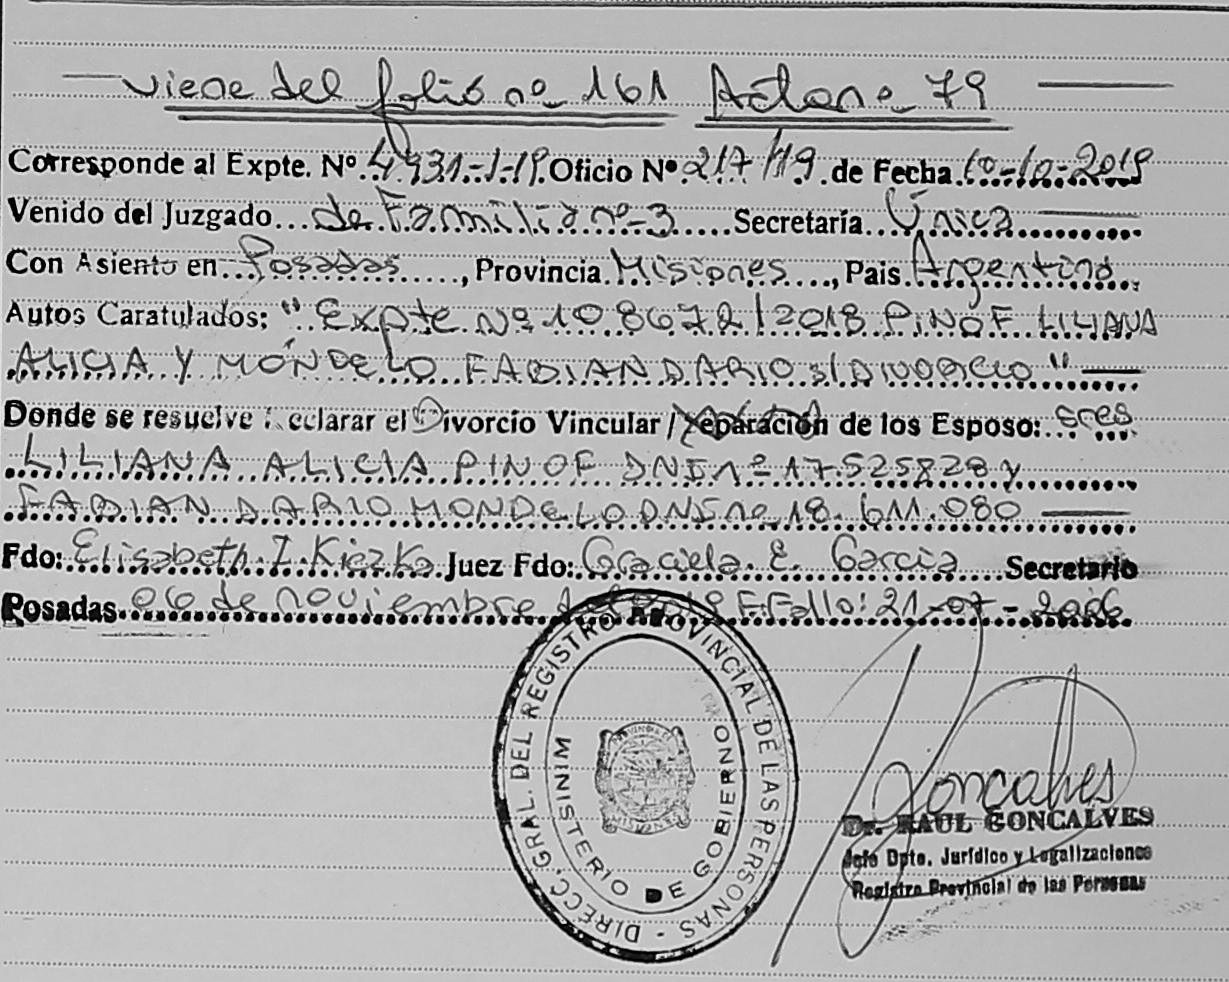 viene del folio nº 161 Acta nº 79
Corresponde al Expte. Nº 4931-J-19. Oficio Nº 217/19 de Fecha 10-10-2019
Venido del Juzgado de Familia nº 3 Secretaría Única
Con Asiento en Posadas, Provincia Misiones, Pais Argentina.
Autos Caratulados: "Expte Nº 108672/2018 PINOF LILIANA
ALICIA Y MONDELO FABIAN DARIO s/DIVORCIO"
Donde se resuelve declarar el Divorcio Vincular / Separación de los Esposo: sres
LILIANA ALICIA PINOF DNI nº 17.525828 y
FABIAN DARIO MONDELO DNI nº 18.611.080
Fdo: Elisabeth. I. Kiczka Juez Fdo: Graciela. E. Garcia Secretario
Posadas 06 de noviembre del 2019 F. Fallo: 21-07-2006
DIRECC. GRAL. DEL REGISTRO PROVINCIAL DE LAS PERSONAS -
MINISTERIO DE GOBIERNO
Goncalves
Dr. RAUL GONCALVES
Jefe Dpto. Jurídico y Legalizaciones
Registro Provincial de las Personas